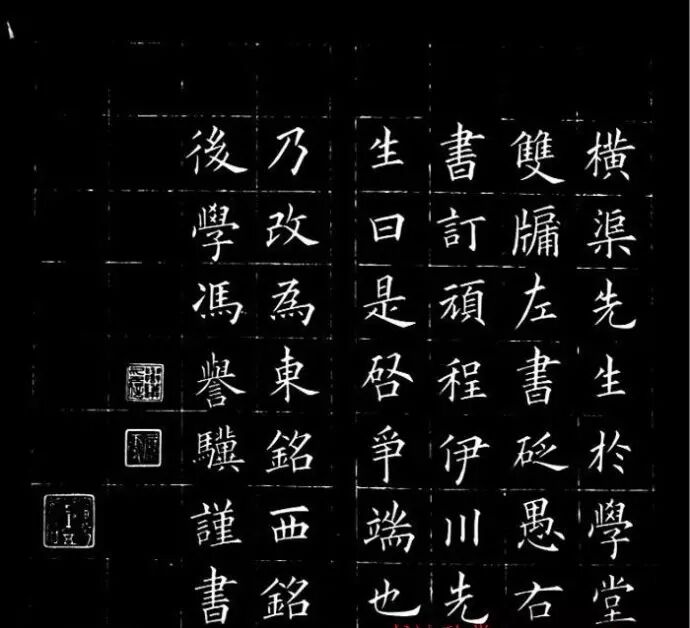 橫渠先生於學堂
雙牖左書砭愚右
書訂頑程伊川先
生曰是啓爭端也
乃改為東銘西銘
後學馮譽驥謹書